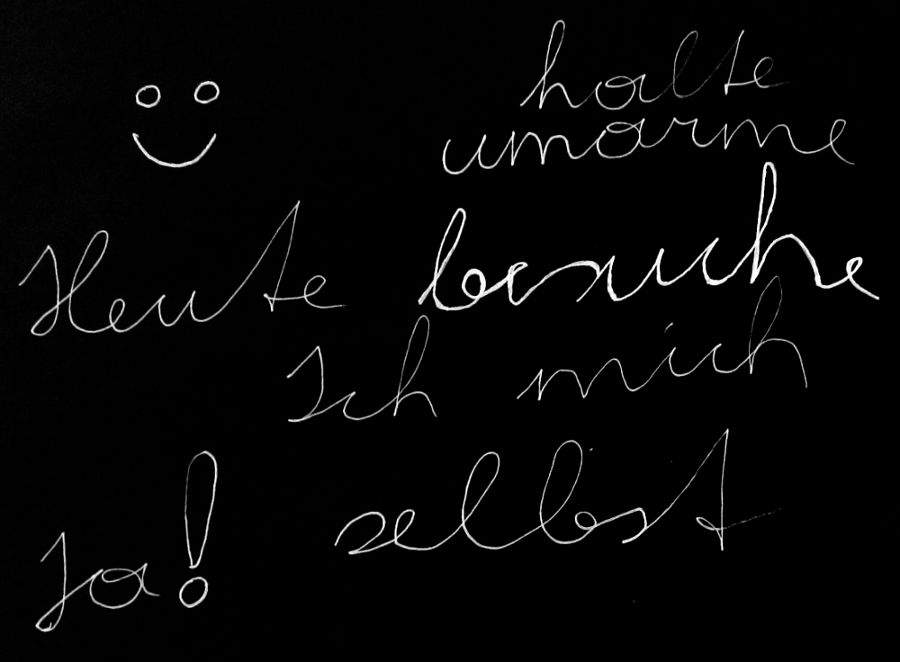 halte
umarme
Heute besuche
Ich mich
selbst
Ja!